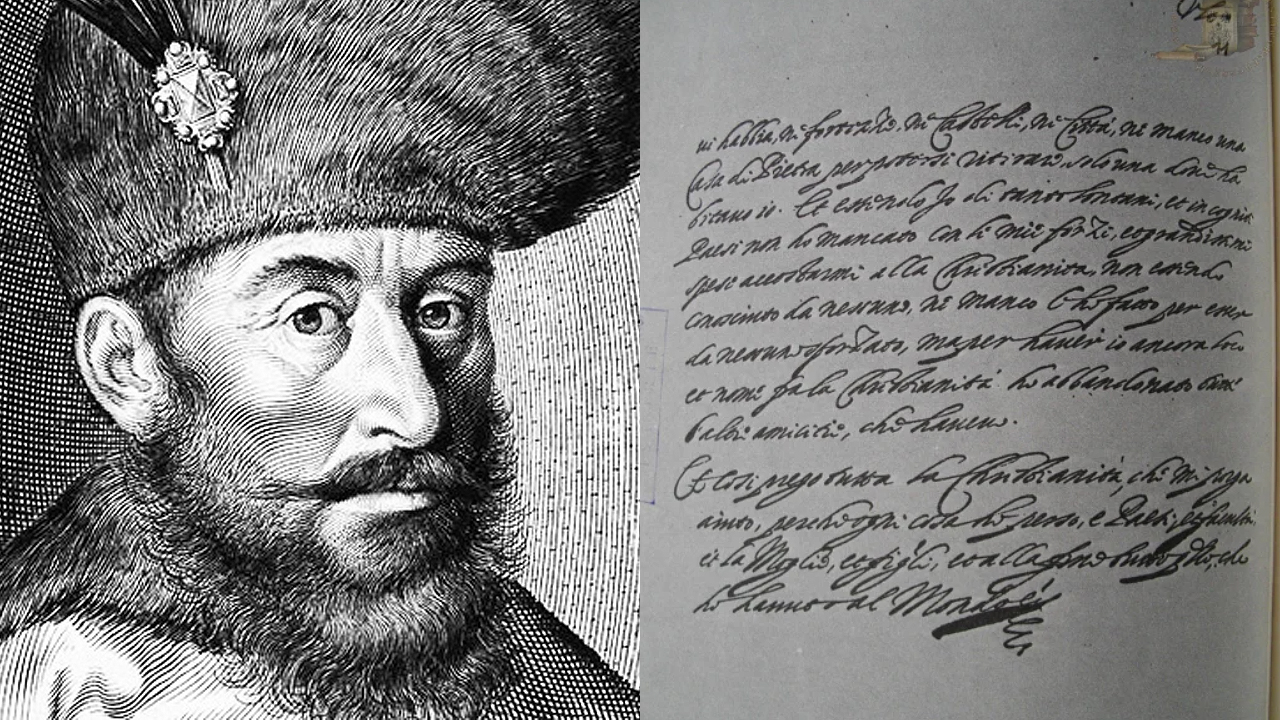 vi habbia, ne fortezze, ne Castelli, ne Città, ne manco una
Casa di Pietra per potersi ritirare, solo una dove ha
bitavo io. Et essendo Io di tanto lontani, et incogniti
Paesi non ho mancato con le mie forze, et grandissime
spese accostarmi alla Christianità, non essendo
conosciuto da nessuno, ne manco l'ho fatto per esser
da nessuno sforzato, ma per haver io ancora loco
et nome fra la Christianità ho abbandonato tutte
l'altre amicitie, che havevo.
Et così prego tutta la Christianità, che mi porga
aiuto, perche ogni cosa ho perso, e Paesi, et facultà,
et la Moglie, et figli, et alla fine tutto quello, che
ho havuto al Mondo